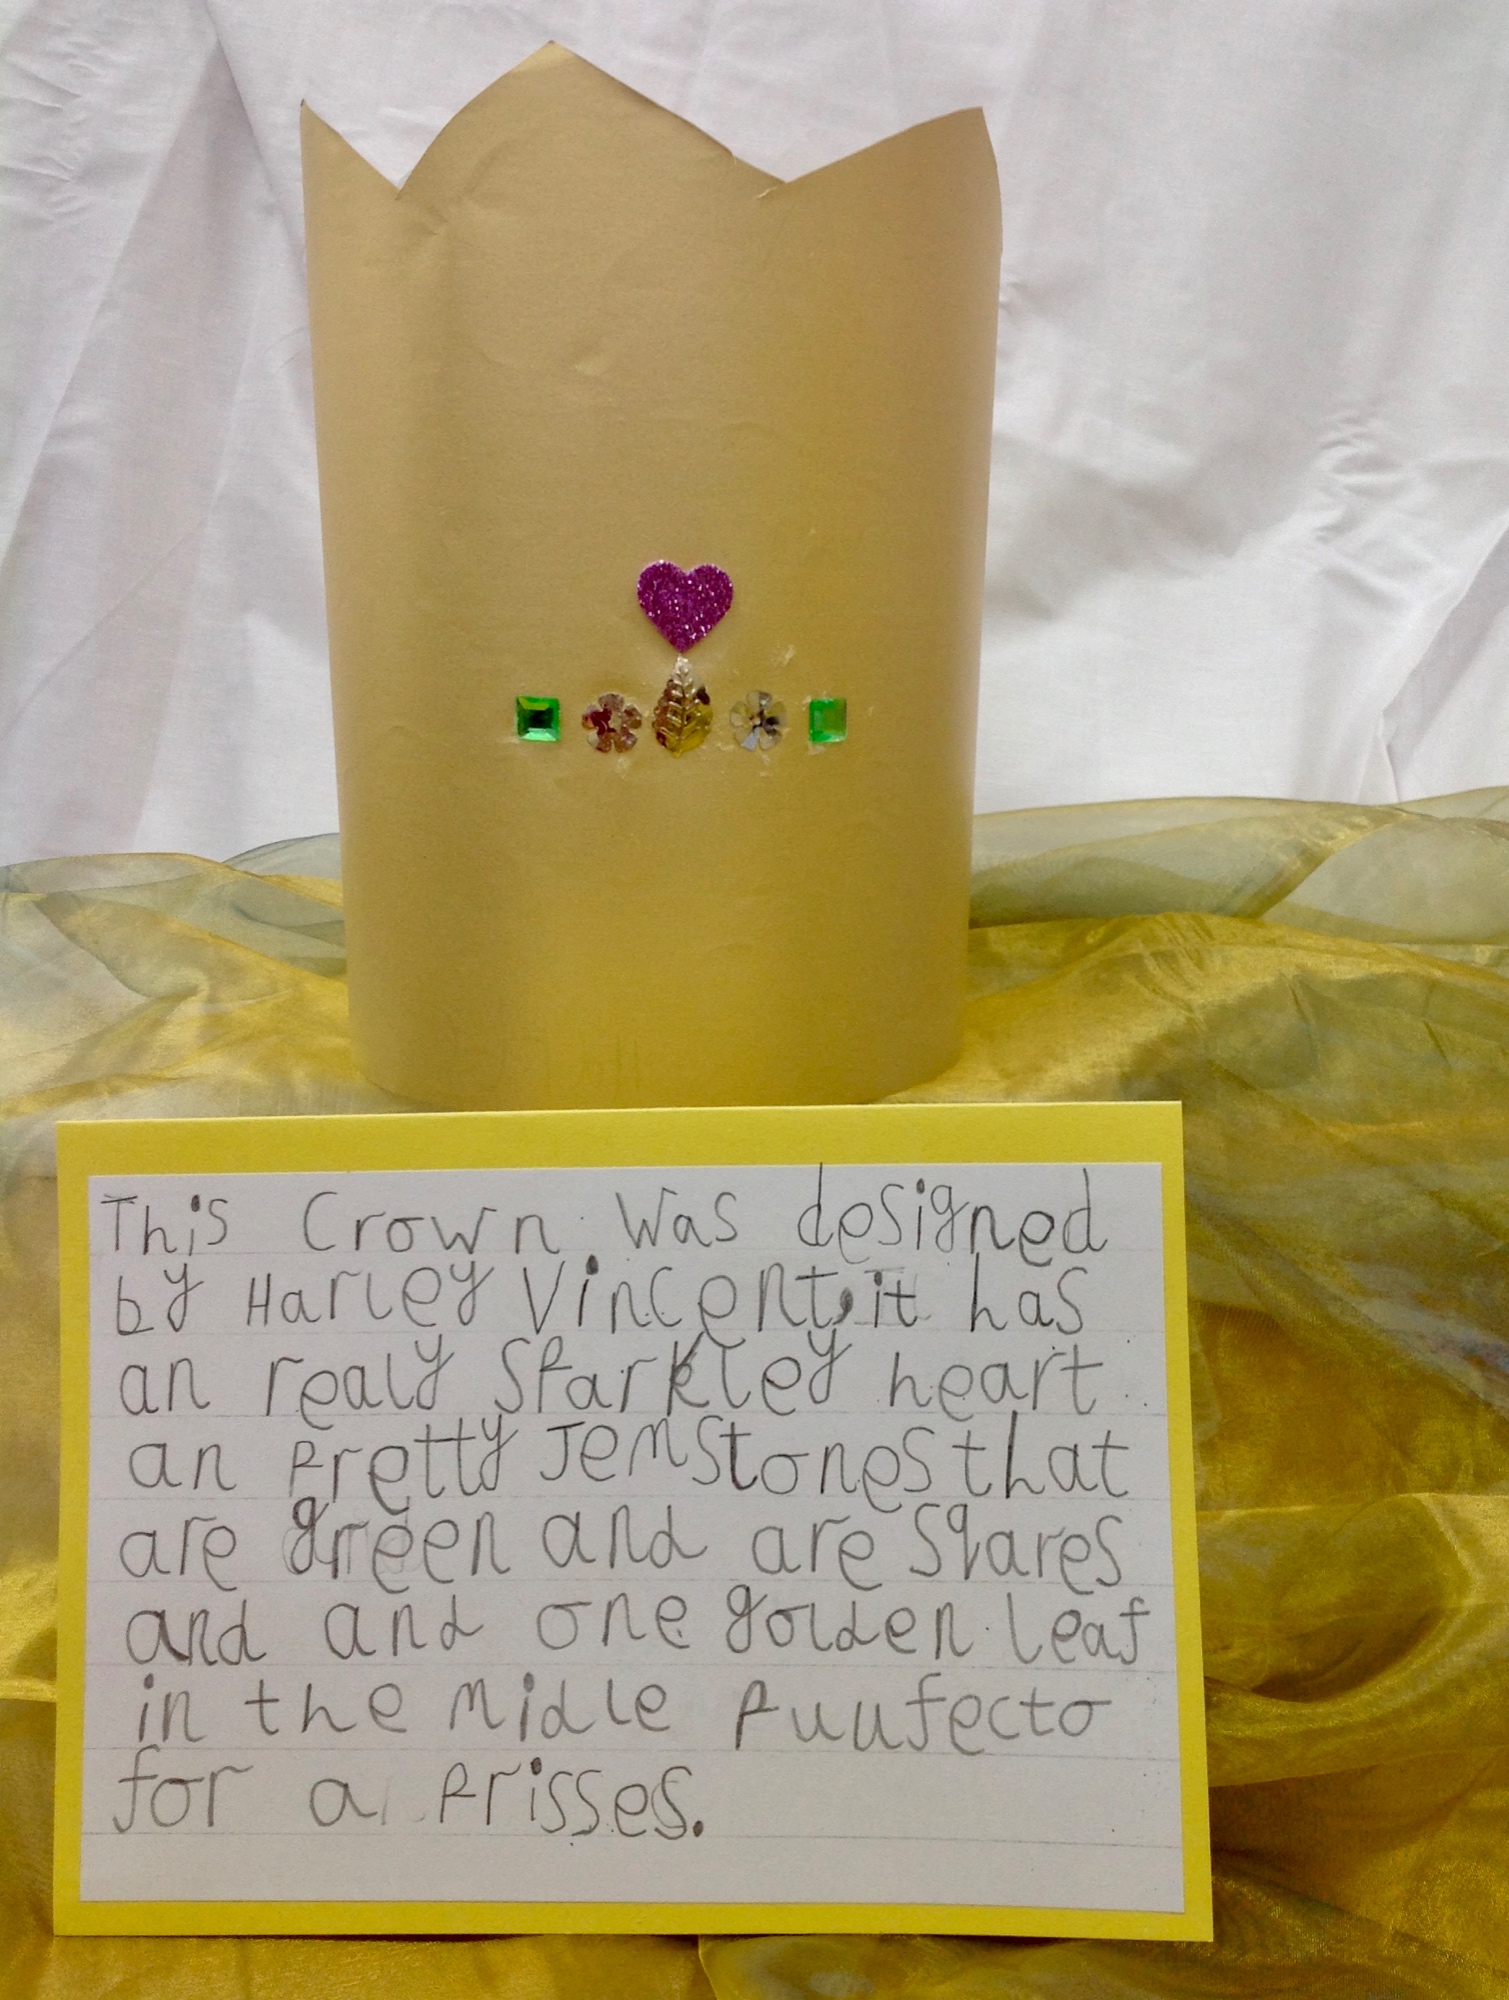 This Crown Was designed
by Harley Vincent, it has
an realy Sparkley heart
an Pretty Jemstones that
are green and are Sqares
and and one golden leaf
in the midle Puufecto
for a Prisses.